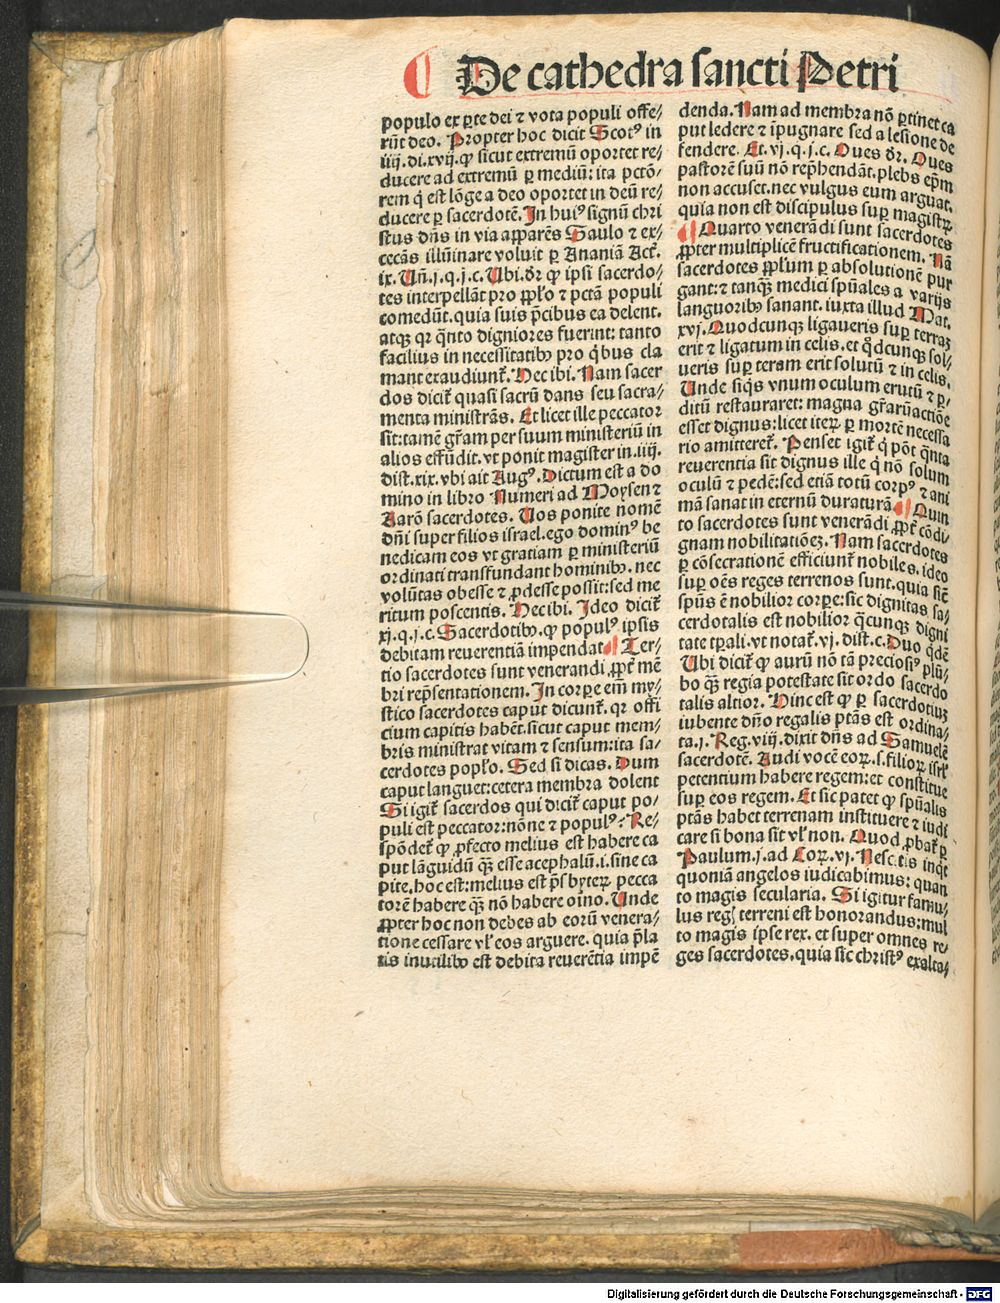 De cathedra sancti Petri
populo ex ꝑte dei ⁊ vota populi offe⸗
rūt deo. Propter hoc dicit Scotꝰ in
iiij.di.xvij.ꝙ sicut extremū oportet re⸗
ducere ad extremū ꝑ mediū: ita pctō⸗
rem q̇ est lōge a deo oportet in deū re⸗
ducere ꝑ sacerdotē. In huiꝰ signū chri
stus dn̄s in via apparēs Saulo ⁊ ex⸗
cecās illūinare voluit ꝑ Ananiā Act̄.
ix. Un̄.j.q.j.c. Ubi.dr̄ ꝙ ipsi sacerdo⸗
tes interpellāt pro pp̄lo ⁊ pctā populi
comedūt.quia suis p̄cibus ea delent.
atqꝫ qr q̄nto digniores fuerint: tanto
facilius in necessitatibꝰ pro q̇bus cla
mant exaudiunt̄. Hec ibi. Nam sacer
dos dicit̄ quasi sacrū dans seu sacra⸗
menta ministrās. Et licet ille peccator
sit:tamē gr̄am per suum ministeriū in
alios effūdit.vt ponit magister in.iiij.
dist.xix.vbi ait Augꝰ. Dictum est a do
mino in libro Numeri ad Moysen ⁊
Aarō sacerdotes. Uos ponite nomē
dn̄i super filios israel.ego dominꝰ be
nedicam eos vt gratiam ꝑ ministeriū
ordinati transfundant hominibꝰ.nec
volūtas obesse ⁊ ꝓdesse possit:sed me
ritum poscentis. Hec ibi. Ideo dicit̄
xj.q.j.c. Sacerdotibꝰ.ꝙ populꝰ ipsis
debitam reuerentiā impendat ¶ Ter⸗
tio sacerdotes sunt venerandi ꝓpt̄ mē
bri rep̄sentationem. In corpe em̄ my⸗
stico sacerdotes caput dicunt̄.qr offi
cium capitis habēt.sicut caput mem⸗
bris ministrat vitam ⁊ sensum:ita sa⸗
cerdotes popl̄o. Sed si dicas. Dum
caput languet:cetera membra dolent
Si igit̄ sacerdos qui dicit̄ caput po⸗
puli est peccator:nōne ⁊ populꝰ? Re⸗
spōdet̄ ꝙ ꝓfecto melius est habere ca
put lāguidū qꝫ esse acephalū.i.sine ca
pite.hoc est:melius est p̄sbyteꝝ pecca
torē habere qꝫ nō habere oīno. Unde
ꝓpter hoc non debes ab eorū venera⸗
tione cessare vl̄ eos arguere. quia p̄la
tis inutilibꝰ est debita reuerētia impē
denda. Nam ad membra nō ꝑtinet ca
put ledere ⁊ īpugnare sed a lesione de
fendere. Et.vj.q.j.c. Oues dr̄. Oues
pastorē suū nō rep̄hendāt.plebs ep̄m
non accuset.nec vulgus eum arguat.
quia non est discipulus suꝑ magistꝝ
¶ Quarto venerādi sunt sacerdotes
ꝓpter multiplicē fructificationem. Nā
sacerdotes pp̄lum ꝑ absolutionē pur
gant:⁊ tanqꝫ medici spūales a varijs
languoribꝰ sanant. iuxta illud Mat.
xvj. Quodcunqꝫ ligaueris suꝑ terraꝫ
erit ⁊ ligatum in celis.et q̄dcunqꝫ sol⸗
ueris suꝑ teram erit solutū ⁊ in celis.
Unde siq̇s vnum oculum erutū ⁊ ꝑ⸗
ditū restauraret: magna gr̄arū actiōe
esset dignus:licet iteꝝ ꝑ mortē necessa
rio amitteret̄. Penset igit̄ q̇ pōt q̄nta
reuerentia sit dignus ille q̇ nō solum
oculū ⁊ pedē:sed etiā totū corpꝰ ⁊ ani
mā sanat in eternū duraturā ¶ Quin
to sacerdotes sunt venerādi ꝓpt̄ cōdi⸗
gnam nobilitatiōeꝫ. Nam sacerdotes
ꝑ cōsecrationē efficiunt̄ nobiles. ideo
suꝑ oēs reges terrenos sunt.quia sic̄
spūs ē nobilior corpe:sic dignitas sa⸗
cerdotalis est nobilior q̄cunqꝫ digni
tate tp̄ali.vt notat̄.vj.dist.c. Duo q̇dē
Ubi dicit̄ ꝙ aurū nō tā preciosiꝰ plū⸗
bo qꝫ regia potestate sit ordo sacerdo
talis altior. Hinc est ꝙ ꝑ sacerdotiuꝫ
iubente dn̄o regalis ptās est ordina⸗
ta.j. Reg.viij.dixit dn̄s ad Samuelē
sacerdotē. Audi vocē eoꝝ.s.filioꝝ isrl̄
petentium habere regem:et constitue
suꝑ eos regem. Et sic patet ꝙ spūalis
ptās habet terrenam instituere ⁊ iudi
care si bona sit vl̄ non. Quod ꝓbat̄ ꝑ
Paulum.j.ad Coꝝ.vj. Nescitis inq̇t
quoniā angelos iudicabimus: quan
to magis secularia. Si igitur famu⸗
lus regꝭ terreni est honorandus:mul
to magis ipse rex. et super omnes re⸗
ges sacerdotes.quia sic christꝰ exalta⸗
Digitalisierung gefördert durch die Deutsche Forschungsgemeinschaft - DFG